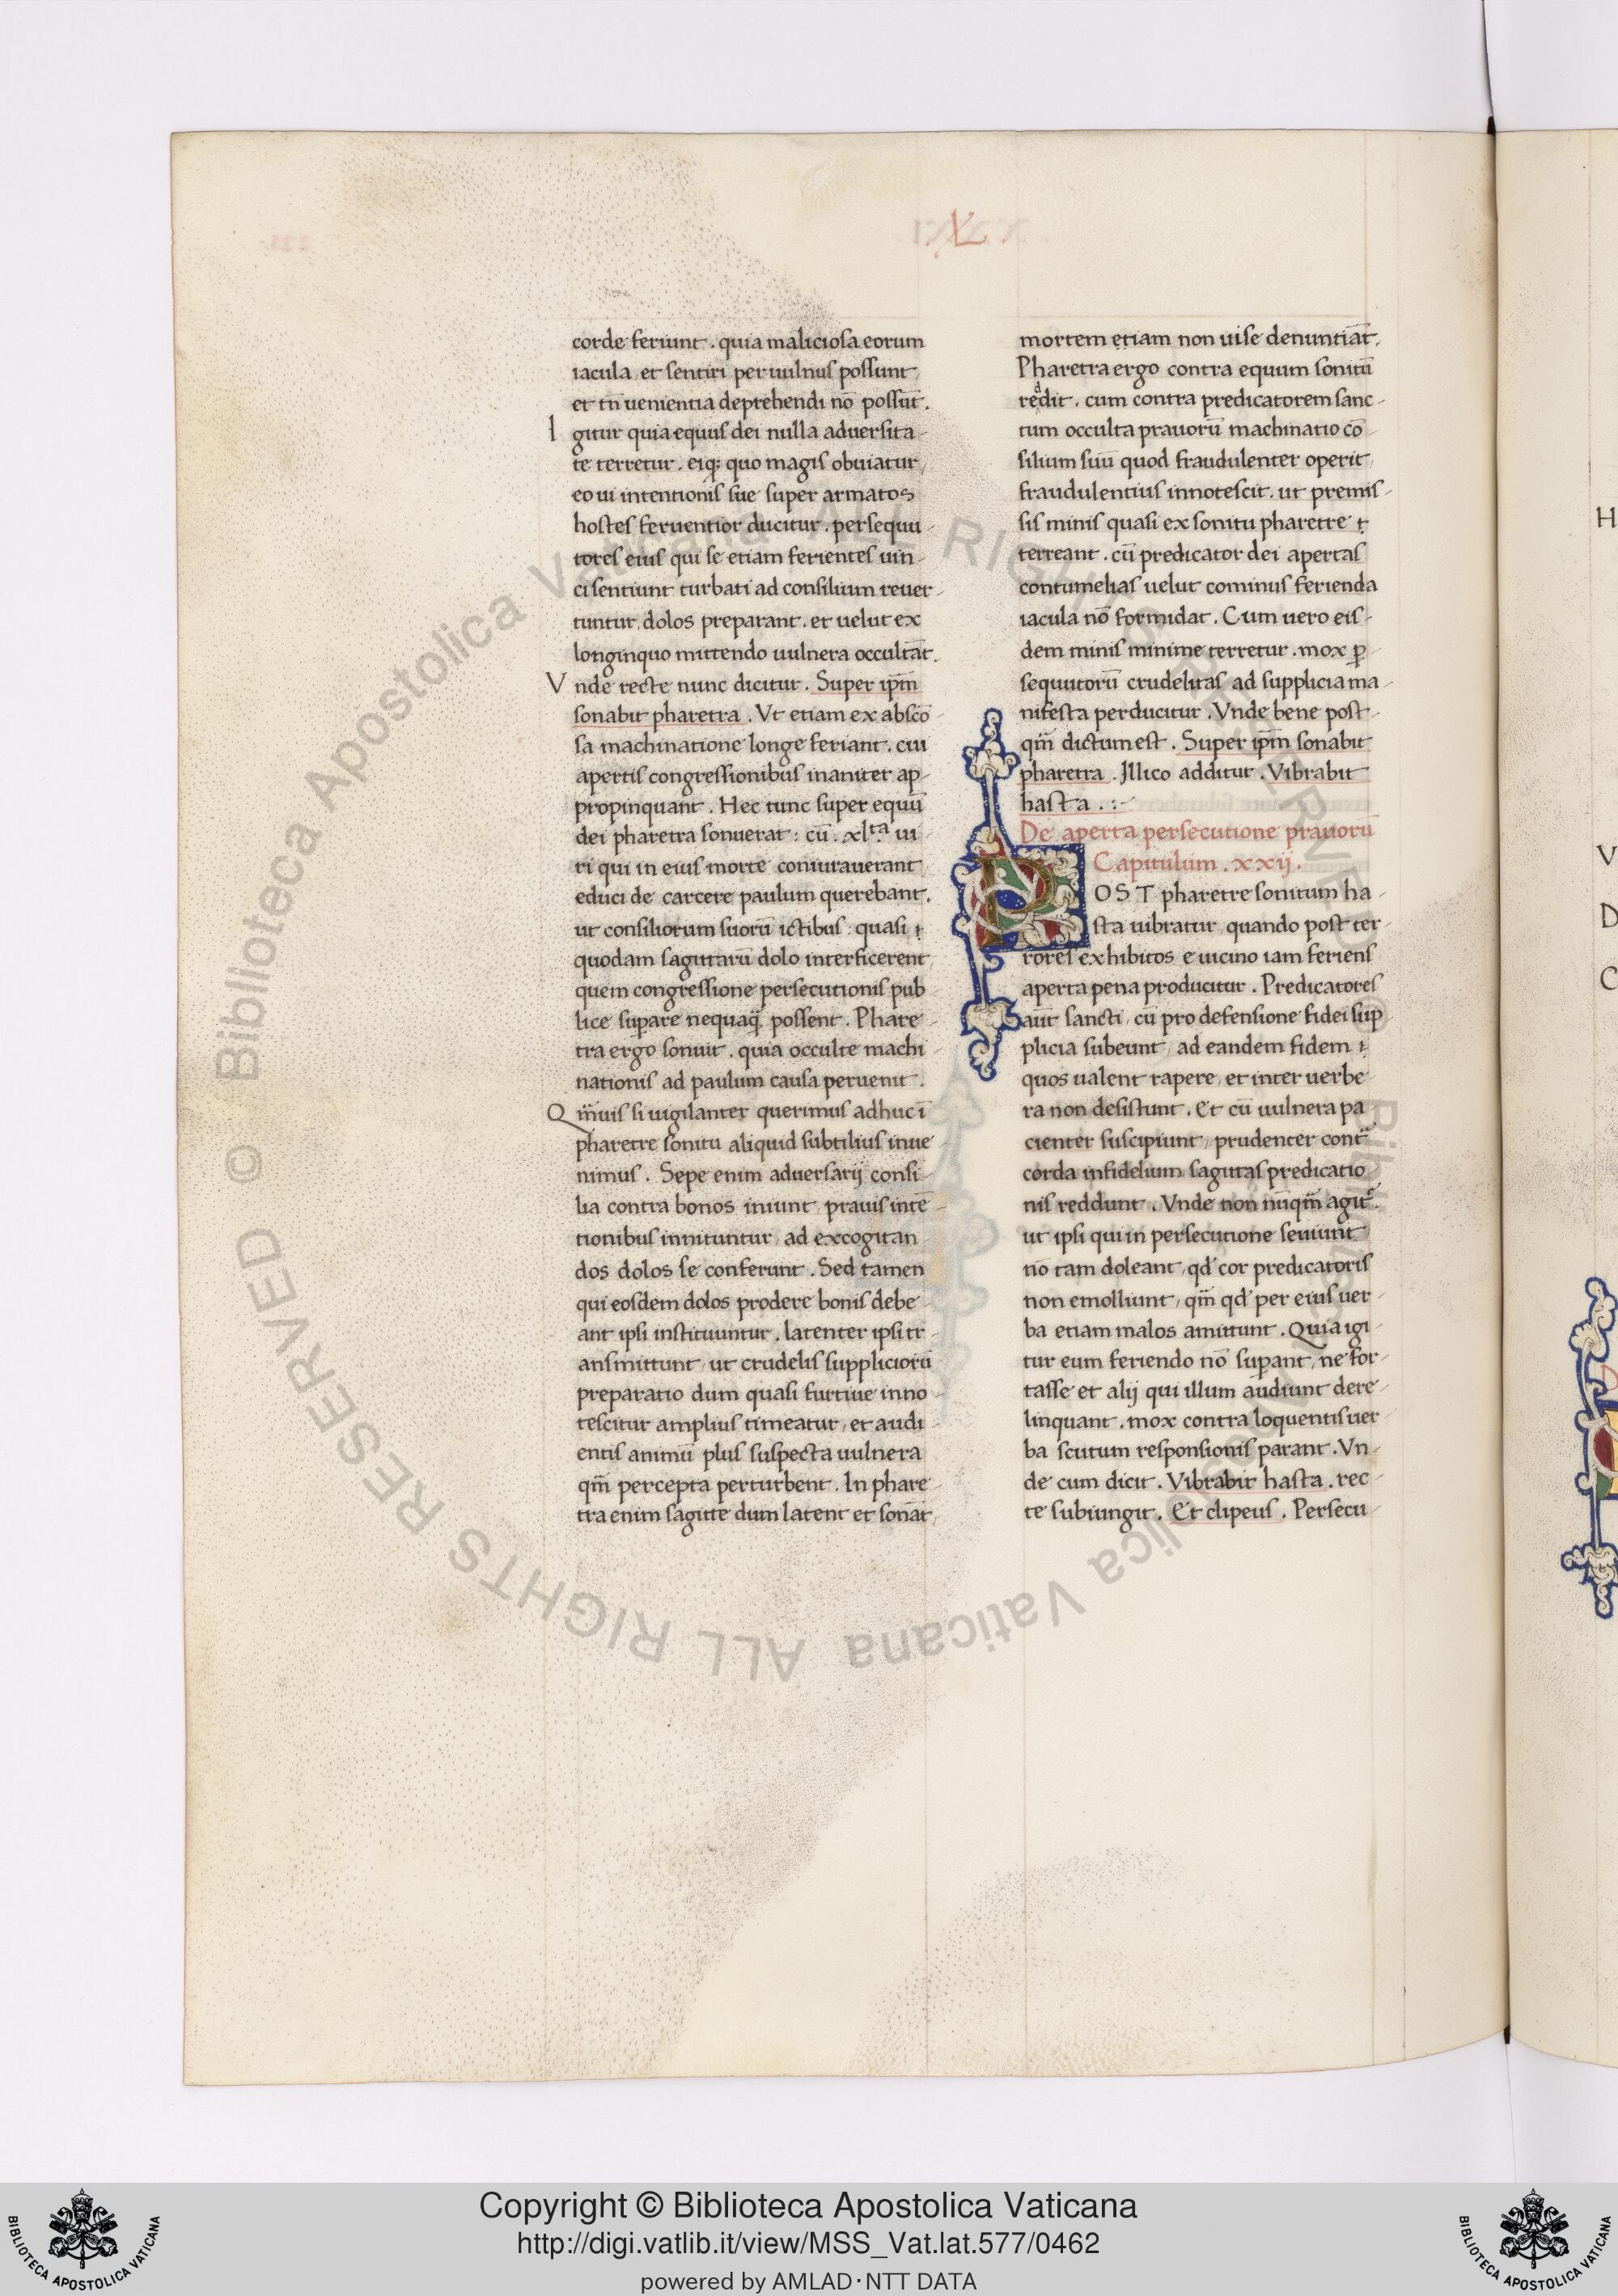 L
corde feriunt . quia maliciosa eorum
iacula et sentiri per uulnus possunt,
et tn̄ uenientia deprehendi nō possūt.
Igitur quia equus dei nulla aduersita-
te terretur . eiq; quo magis obuiatur,
eo ui intentionis sue super armatos
hostes feruentior ducitur . persequu-
tores eius qui se etiam ferientes uin-
ci sentiunt turbati ad consilium reuer-
tuntur, dolos preparant . et uelut ex
longinquo mittendo uulnera occultāt.
Vnde recte nunc dicitur . Super ip̄m
sonabit pharetra . Vt etiam ex abscō-
sa machinatione longe feriant . cui
apertis congressionibus inaniter ap-
propinquant . Hec tunc super equū
dei pharetra sonuerat : cū . xl.ta ui-
ri qui in eius morte coniurauerant,
educi de carcere paulum querebant.
ut consiliorum suorū ictibus : quasi ī
quodam sagittarū dolo interficerent,
quem congressione persecutionis pub-
lice sup̄are nequaq̄ possent . Phare-
tra ergo sonuit . quia occulte machi-
nationis ad paulum causa peruenit .
Qm̄uis si uigilanter querimus adhuc ī
pharetre sonitu aliquid subtilius inue-
nimus . Sepe enim aduersarij consi-
lia contra bonos iniunt, prauis intē-
tionibus innituntur, ad excogitan-
dos dolos se conferunt . Sed tamen
qui eosdem dolos prodere bonis debe-
ant ipsi instituuntur . latenter ipsi tr-
ansmittunt, ut crudelis suppliciorū
preparatio dum quasi furtiue inno-
tescitur amplius timeatur, et audi-
entis animū plus suspecta uulnera
qm̄ percepta perturbent . In phare-
tra enim sagitte dum latent et sonāt,
mortem etiam non uise denuntiāt.
Pharetra ergo contra equum sonitū
reddit . cum contra predicatorem sanc-
tum occulta prauorū machinatio cō-
silium suū quod fraudulenter operit,
fraudulentius innotescit . ut premis-
sis minis quasi ex sonitu pharetre ī
terreant . cū predicator dei apertas
contumelias uelut cominus ferienda
iacula nō formidat . Cum uero eis-
dem minis minime terretur . mox p̱
sequutorū crudelitas ad supplicia ma-
nifesta perducitur . Vnde bene post-
qm̄ dictum est . Super ip̄m sonabit
pharetra . Illico additur . Vibrabit
hasta . :-
De aperta persecutione prauorū
Capitulum . xxij .
POST pharetre sonitum ha-
sta uibratur, quando post ter-
rores exhibitos e uicino iam feriens
aperta pena producitur . Predicatores
aūt sancti, cū pro defensione fidei sup-
plicia subeunt, ad eandem fidem ī
quos ualent rapere, et inter uerbe-
ra non desistunt . Et cū uulnera pa-
cienter suscipiunt, prudenter contᵃ
corda infidelium sagittas predicatio-
nis reddunt . Vnde non nūqm̄ agit᷑.
ut ipsi qui in persecutione seuiunt
nō tam doleant, qd̄ cor predicatoris
non emolliunt, qm̄ qd̄ per eius uer-
ba etiam malos amittunt . Quia igi-
tur eum feriendo nō sup̄ant, ne for-
tasse et alij qui illum audiunt dere-
linquant . mox contra loquentis uer-
ba scutum responsionis parant . Vn-
de cum dicit . Vibrabit hasta . rec-
te subiungit . Et clipeus . Persecu-
H
V
D
C
Copyright © Biblioteca Apostolica Vaticana
http://digi.vatlib.it/view/MSS_Vat.lat.577/0462
powered by AMLAD·NTT DATA
BIBLIOTECA APOSTOLICA VATICANA
BIBLIOTECA APOSTOLICA VATICANA
© Biblioteca Apostolica Vaticana ALL RIGHTS RESERVED